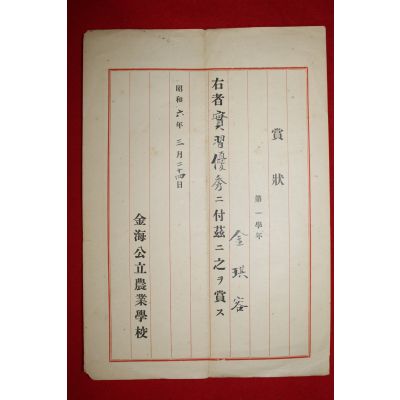 賞狀
第一學年
金琪容
右者實習優秀ニ付茲ニ之ヲ賞ス
昭和六年三月二十四日
金海公立農業學校